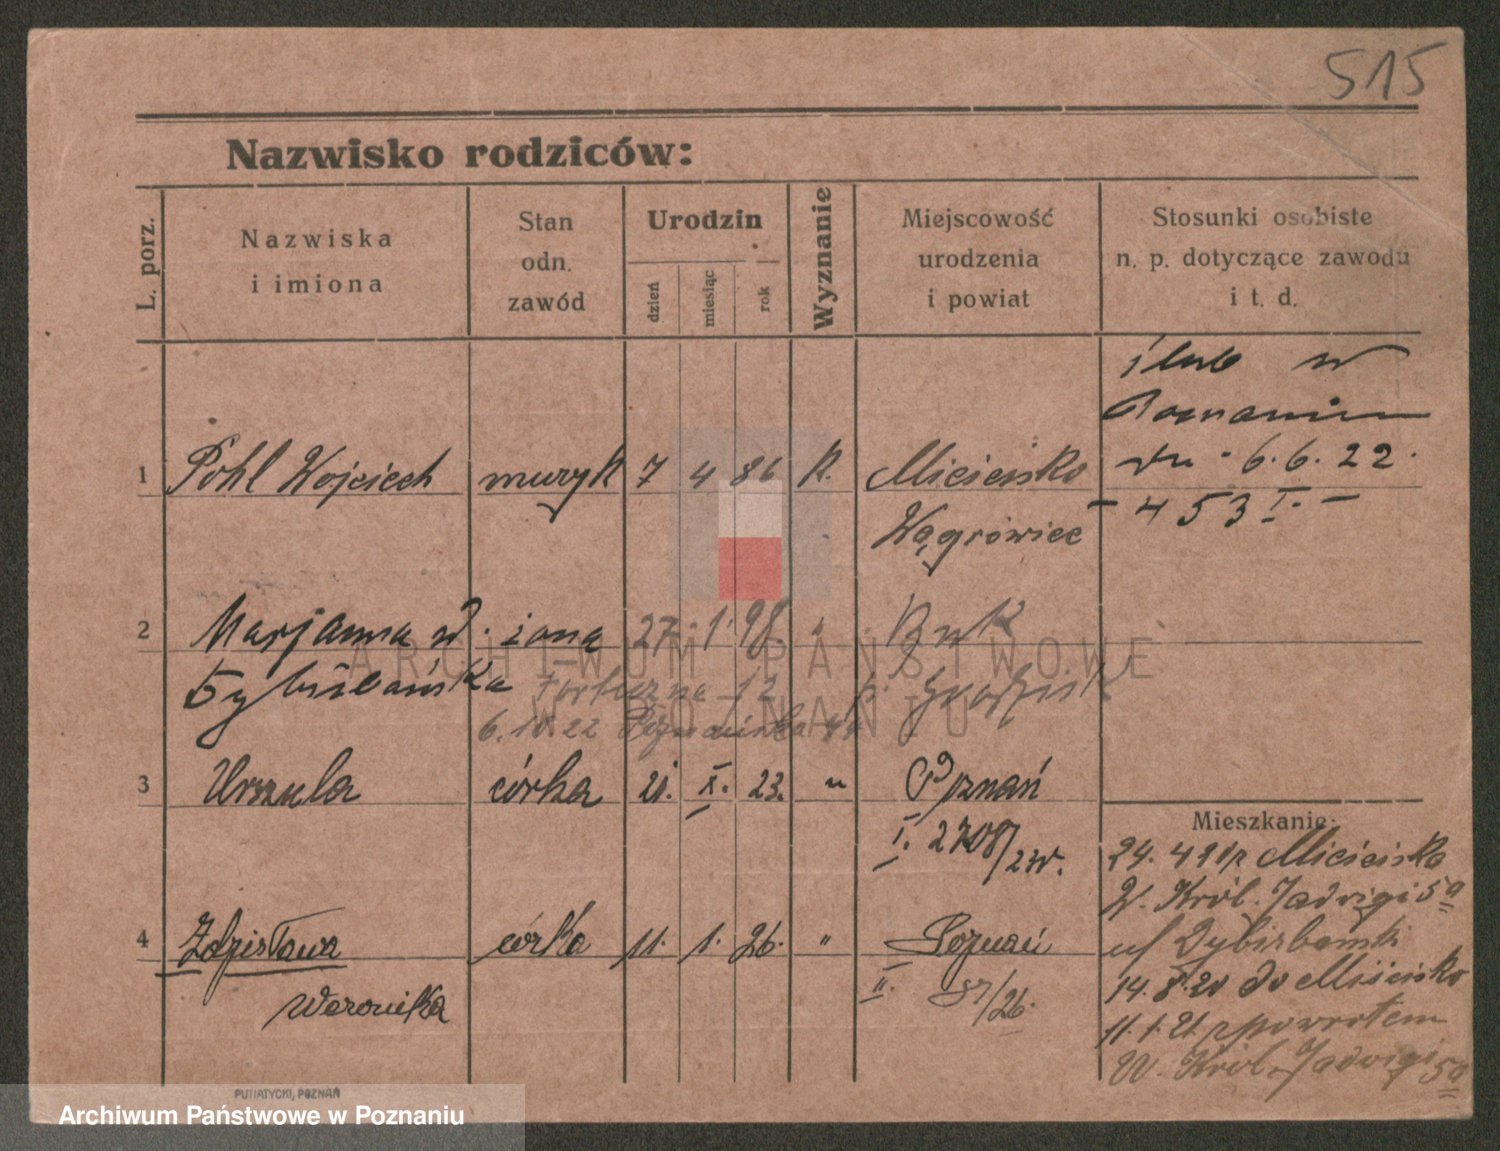 515
Nazwisko rodziców:
L. porz.
Nazwiska
i imiona
Stan
odn.
zawód
Urodzin
dzień
miesiąc
rok
Wyznanie
Miejscowość
urodzenia
i powiat
Stosunki osobiste
n. p. dotyczące zawodu
i t. d.
ślub w
Poznaniu
6.6.22.
- 453 I. -
1 Pohl Wojciech muzyk 7 4 86 k. Mieścisko
Wągrówiec
2 Marjanna żona 27. 1. 98. " Buk
p. Grodzisk
6.10.22
3 Urszula córka 21. X. 23. " Poznań
I. 2708/23
4 Zdzisława córka 11. 1. 26. " Poznań
Weronika II. 87/26.
Mieszkanie:
24. 4 Mieścisko
W. Król. Jadwigi 5a
14.8.20 do Mieścisko
11.1.21 spowrotem
W. Król. Jadwigi 5a
PUTIATYCKI, POZNAŃ
ARCHIWUM PAŃSTWOWE
W POZNANIU
Archiwum Państwowe w Poznaniu